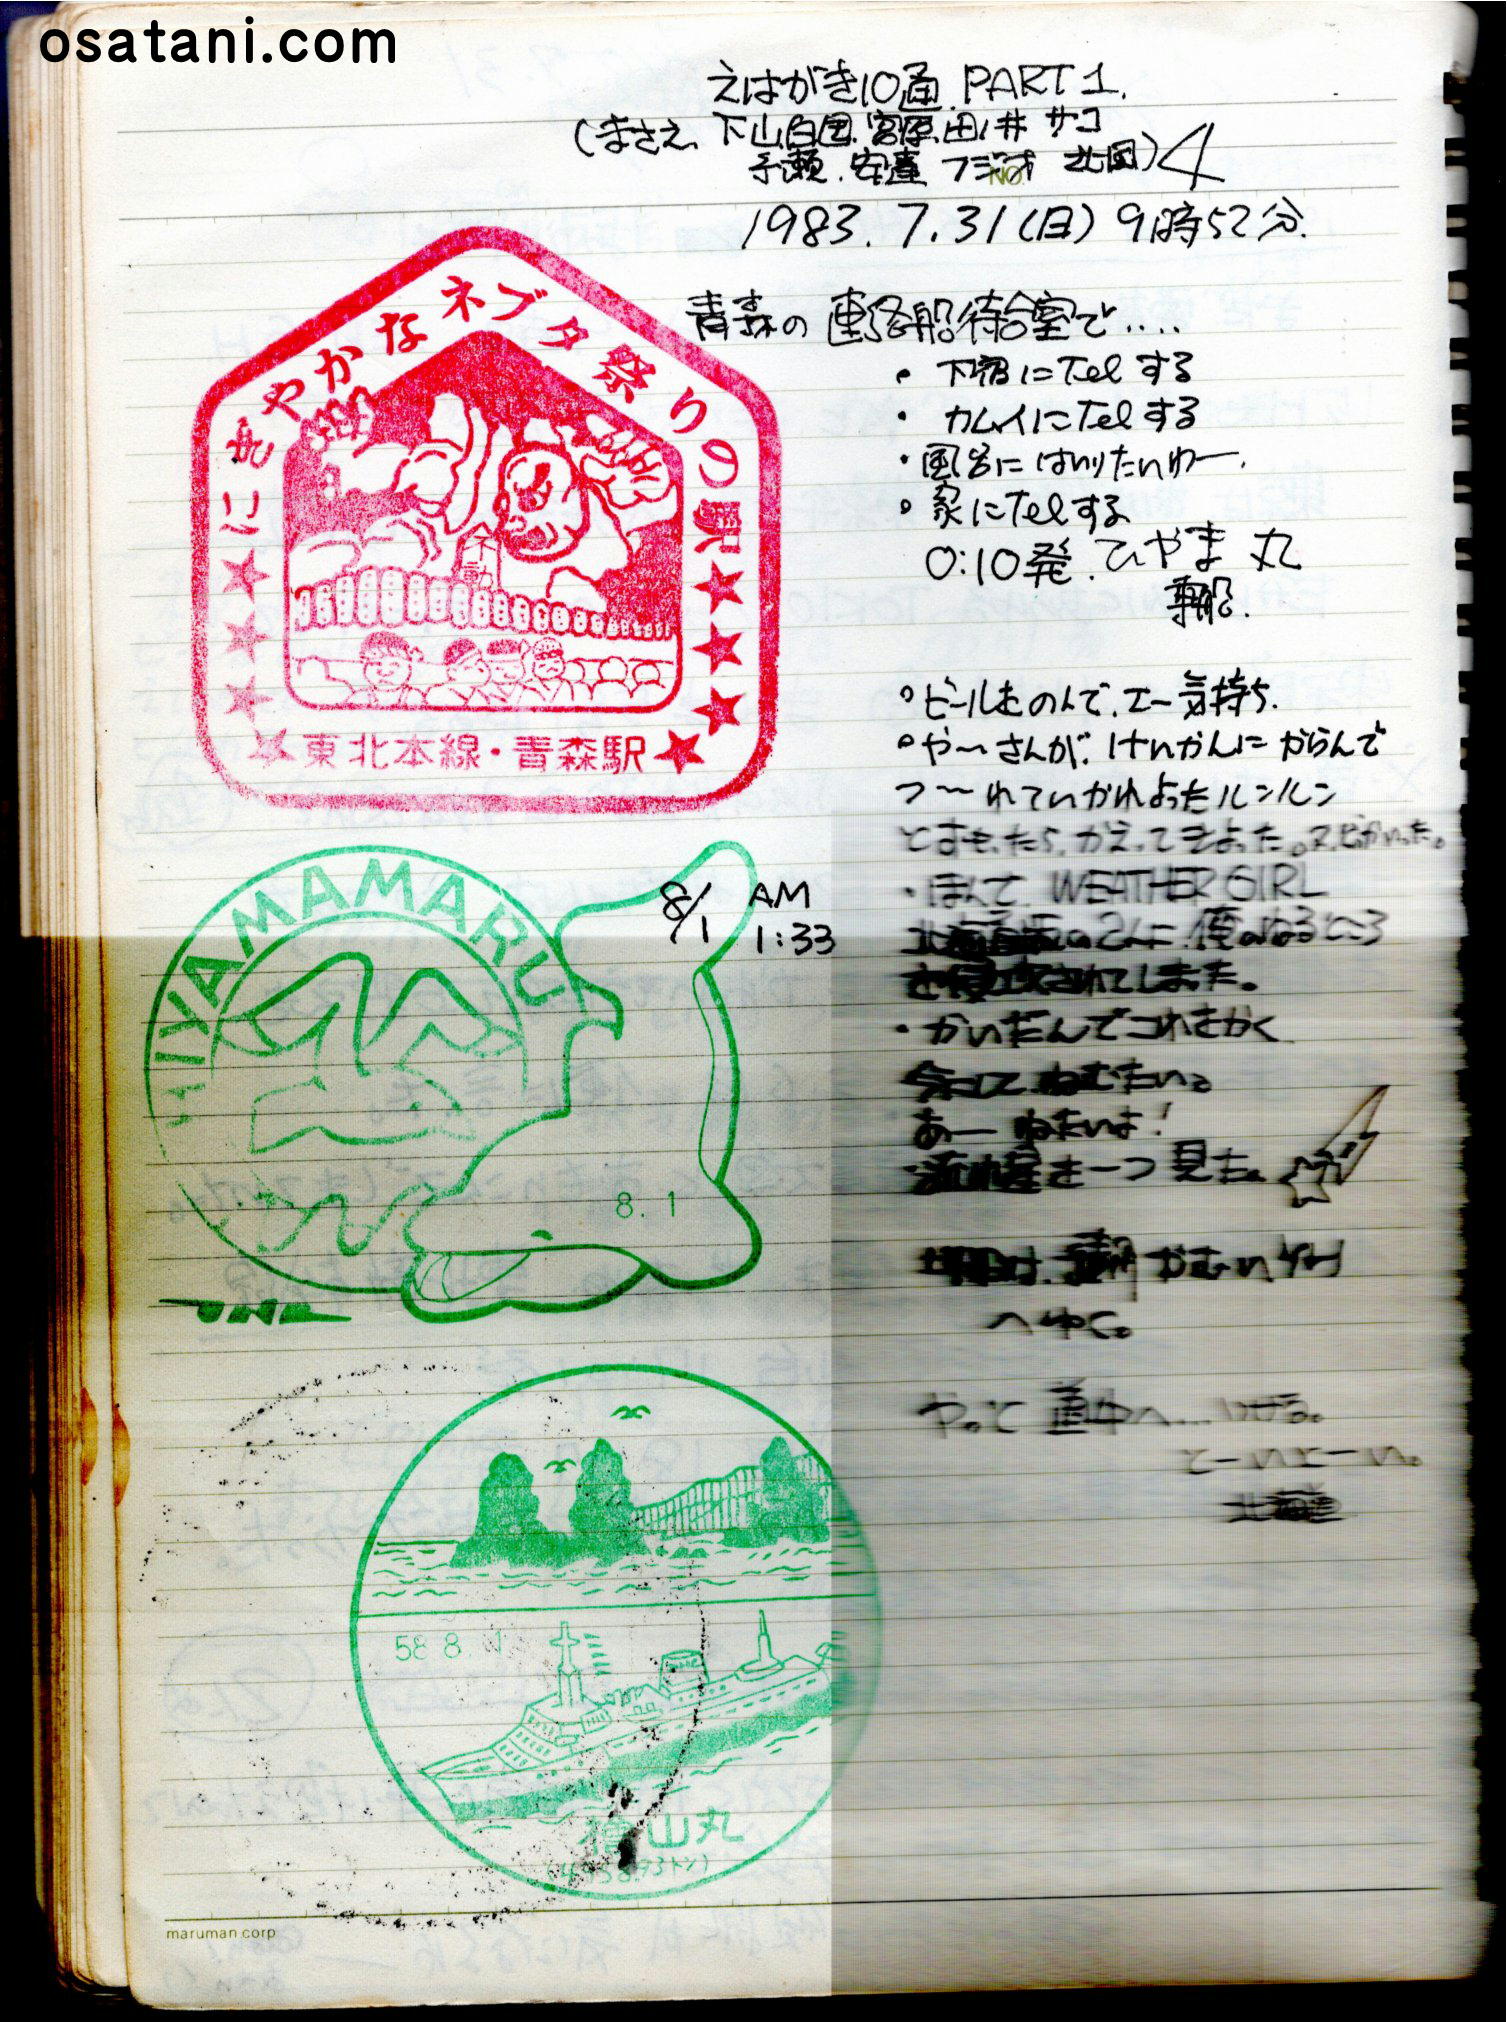 osatani.com
えはがき10通.PART1.
(まさえ、下山、白国、宮原、田ノ井 サコ
予瀬.安達 フジオ 北風) 4
No.
1983.7.31(日)9時52分.
にぎやかなネブタ祭りの駅
不動
東北本線・青森駅
青森の連絡船待合室で....
・下宿にTelする
・カムイにTelする
・風呂にはいりたいわー.
・家にTelする
0:10発.ひやま丸
乗船.
・ビールをのんで、エー気持ち.
・や〜さんが、けいかんにからんで
つ〜れていかれよったルンルン
とおもったら、かえってきよった。
・ほんで、WEATHER GIRL
のこんに、俺のねるところ
を侵攻されてしまった。
・かいだんでコレをかく
ねむたい。
あー ねたいよ!
・流れ星を一つ見た。
HIYAMAMARU
8/1 AM
1:33
8. 1
へゆく。
やっと道中へ...
とーいよーい。
北海道
58 8. 1
檜山丸
maruman corp